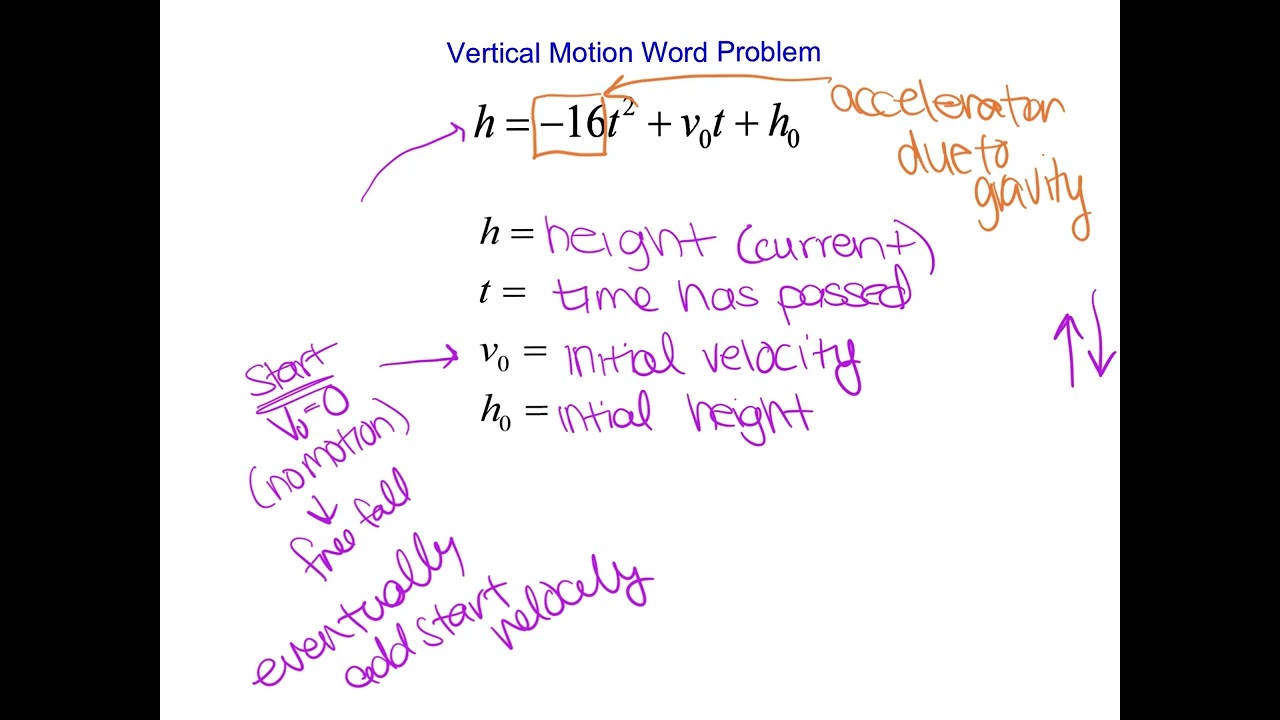 Vertical Motion Word Problem
h = −16t² + v₀t + h₀
acceleration
due to
gravity
h = height (current)
t = time has passed
v₀ = initial velocity
h₀ = intial height
Start
V₀=0
(no motion)
↓
free fall
eventually
add start
velocity